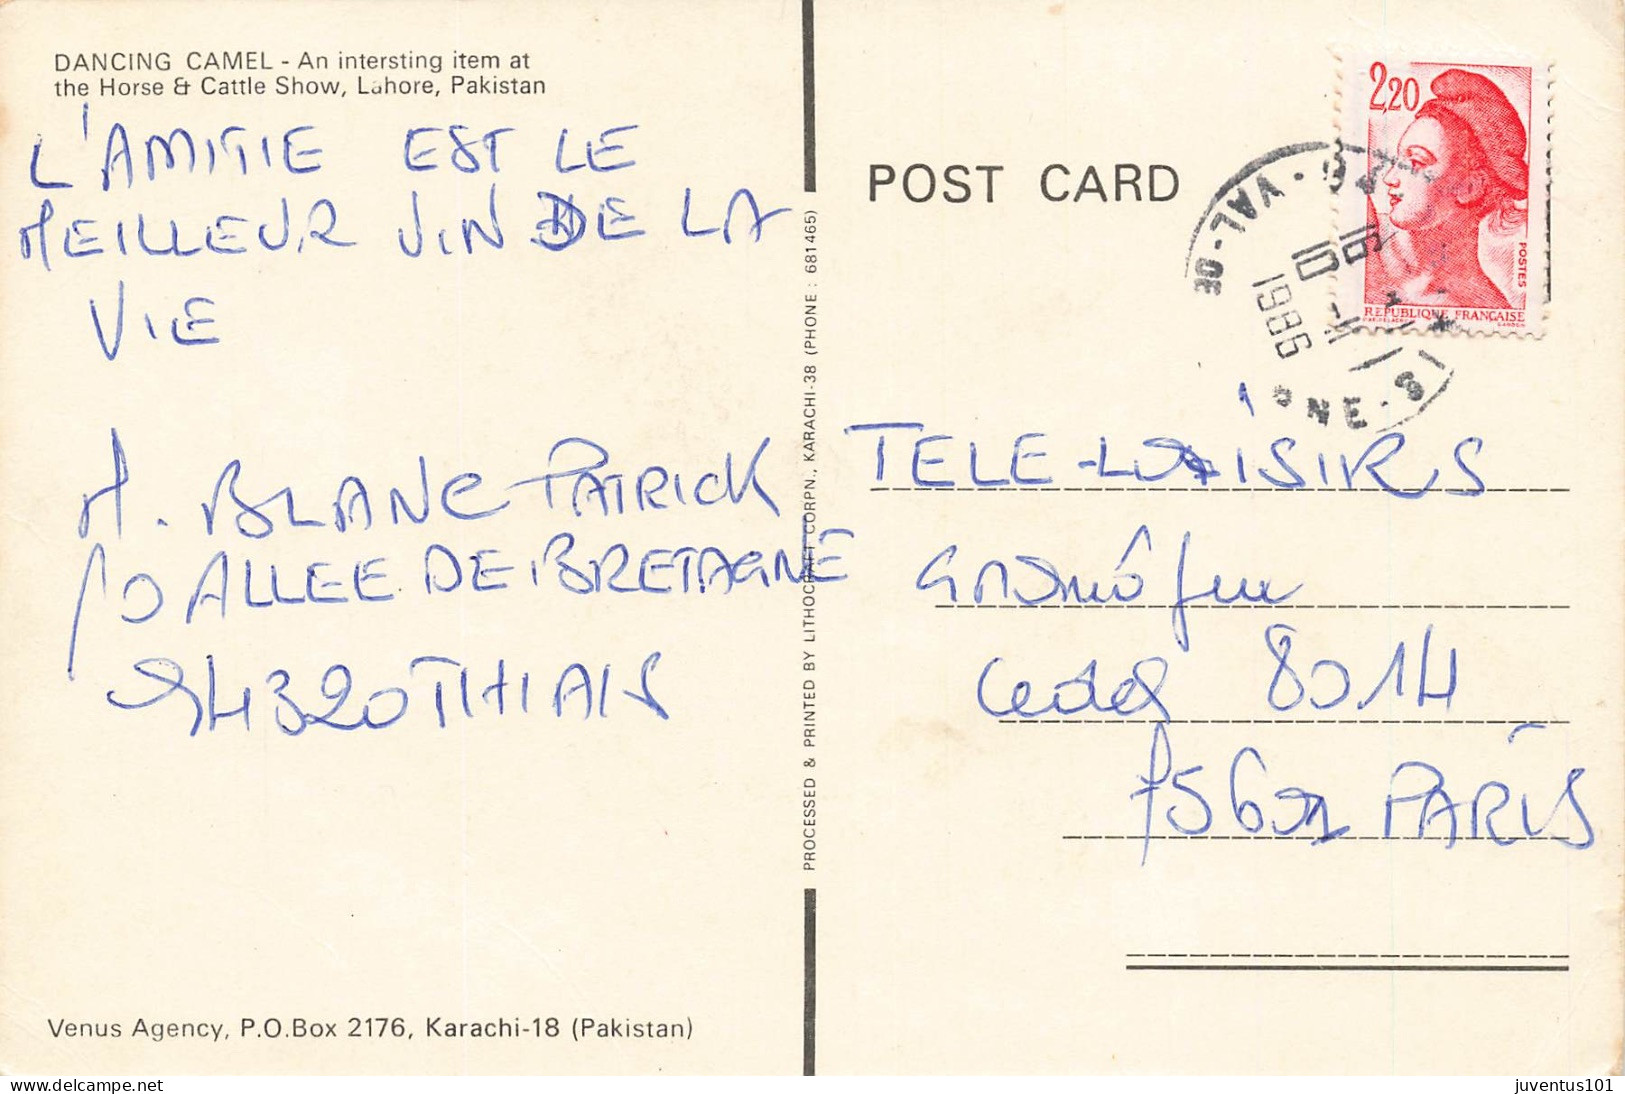 DANCING CAMEL - An intersting item at
the Horse & Cattle Show, Lahore, Pakistan
L'AMITIE EST LE
MEILLEUR VIN DE LA
VIE
M. BLANC PATRICK
10 ALLEE DE BRETAGNE
94320 THIAIS
Venus Agency, P.O.Box 2176, Karachi-18 (Pakistan)
PROCESSED & PRINTED BY LITHOCRAFT CORPN., KARACHI-38 (PHONE : 681465)
POST CARD
2,20
POSTES
REPUBLIQUE FRANÇAISE
GANDON
DE-VAL-
16 H
10 -11
1986
NE-S
TELE-LOISIRS
cedex 8014
PARIS
Delcampe.net
juventus101